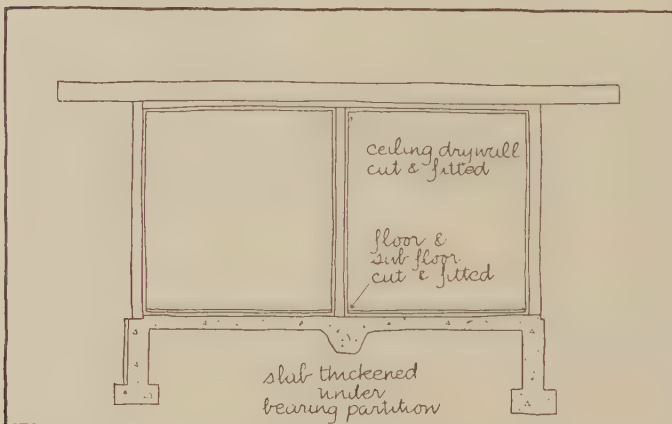 ceiling drywall
cut & fitted
floor &
sub floor
cut & fitted
slab thickened
under
bearing partition